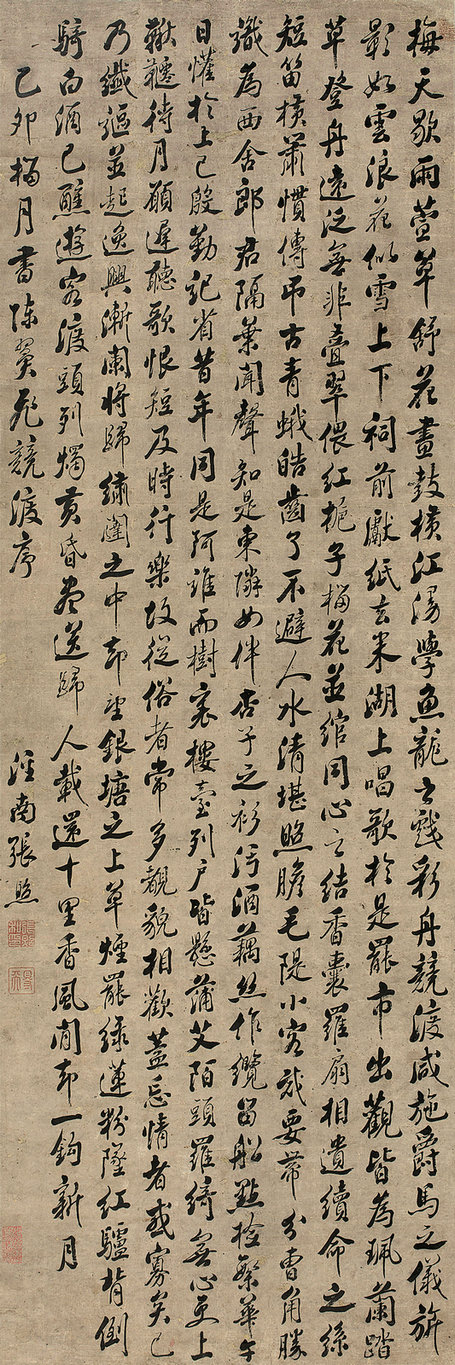 梅天歇雨萱草舒花畫鼓橫江湯學魚龍之戲彩舟競渡咸施爵馬之儀旂
影如雲浪花似雪上下祠前獻紙去來湖上唱歌於是罷市出觀皆為珮蘭踏
草登舟遠泛無非疊翠偎紅梔子榴花並綰同心之結香囊羅扇相遺續命之絲
短笛橫簫慣傳弔古青蛾皓齒了不避人水清堪照膽毛隄小客或要帶分曹角勝
識為西舍郎君隔葉聞聲知是東隣女伴杏子之衫污酒藕絲作纜留船點檢繁華午
日懽於上巳殷勤記省昔年同是阿誰而樹裏樓臺列戶皆懸蒲艾陌頭羅綺無心更上
鞦韆待月願遲聽歌恨短及時行樂故從俗者常多覩貌相歡蓋忘情者或寡矣已
乃纖謳並起逸興漸闌將歸繡闥之中却望銀塘之上草煙罷綠蓮粉墜紅驢背倒
騎白酒已醺遊客渡頭列燭黃昏盡送歸人載還十里香風閒却一鉤新月
己卯榴月書陳翼飛競渡序
涇南張照